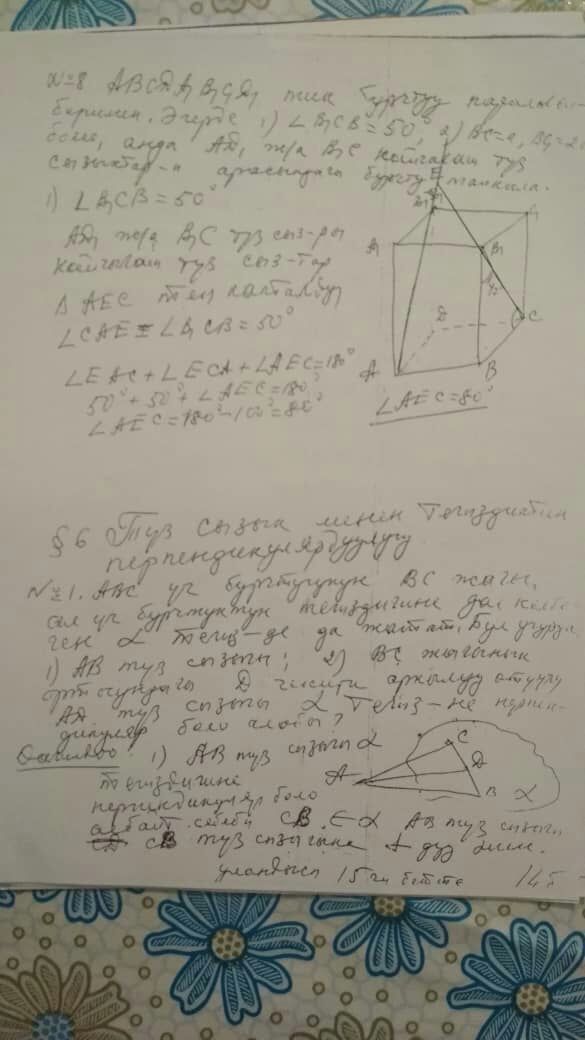 №8 ABCDA₁B₁C₁D₁ тик бурчтуу
берилген. Эгерде 1) ∠B₁CB = 50°, 2) BC=a,
болсо, анда AD₁ ж/а B₁C кайчылаш түз
сызыктар-н арасындагы бурчту тапкыла.
1) ∠B₁CB = 50°
AD₁ ж/а B₁C түз сыз-ры
кайчылаш түз сыз-тар
Δ AEC тең капталдуу
∠CAE = ∠B₁CB = 50°
∠EAC + ∠ECA + ∠AEC = 180°
50° + 50° + ∠AEC = 180°
∠AEC = 180° - 100° = 80°
E
D₁
A₁
B₁
D
C
A
B
∠AEC = 80°
§6 Түз сызык менен Тегиздиктин
перпендикулярдуулугу
№1. ABC үч бурчтугунун BC жагы,
ал үч бурчтуктун тегиздигине дал келбе-
ген α тегиз-де да жатат. Бул учурда
1) AB түз сызыгы; 2) BC жагынын
ортосундагы D чекити аркылуу өтүүчү
AD түз сызыгы α Тегиз-не перпен-
дикуляр боло алабы?
1) AB түз сызыгы α
тегиздигине
перпендикуляр боло
албайт себеби CB ∈ α AB түз сызыгы
CB түз сызыгына
A
C
D
B
α
уландысы 15-ги бетте
14б